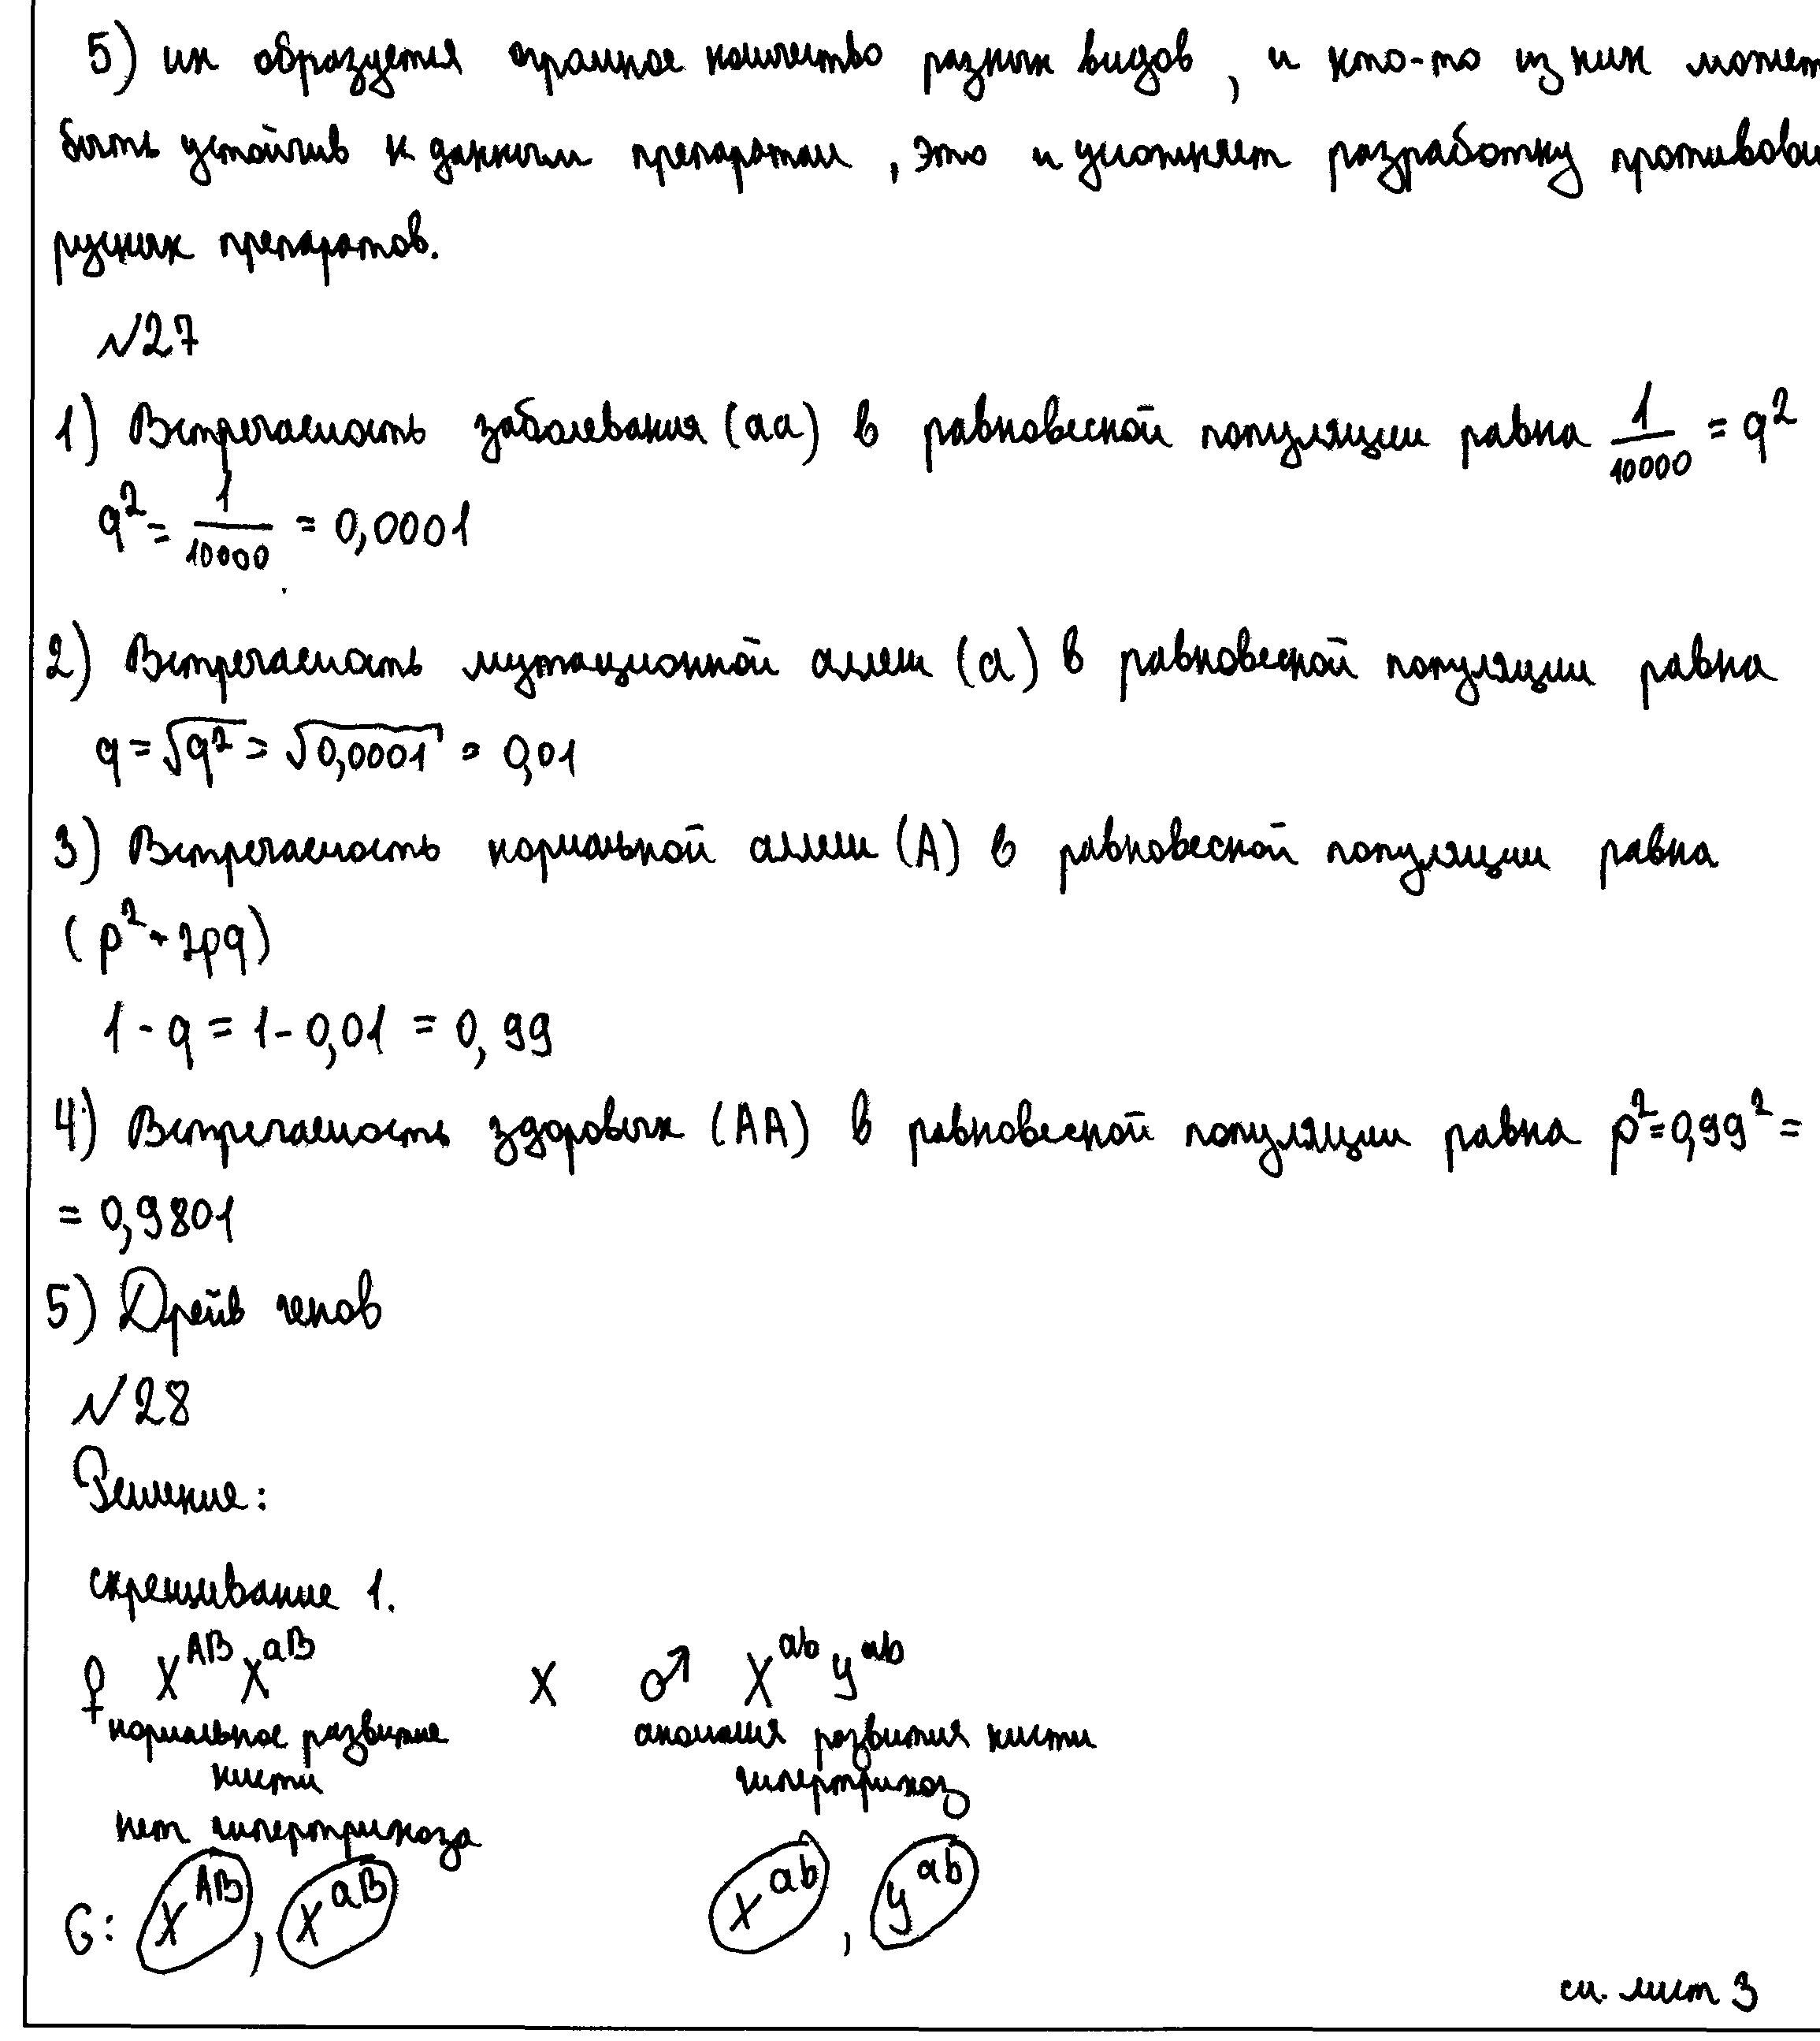 5) их образуется огромное количество разных видов, и кто-то из них может
быть устойчив к данным препаратам, это и усложняет разработку противови-
русных препаратов.
№27
1) Встречаемость заболевания (aa) в равновесной популяции равна 1/10000 = q²
q² = 1/10000 = 0,0001
2) Встречаемость мутационной аллели (a) в равновесной популяции равна
q = √q² = √0,0001 = 0,01
3) Встречаемость нормальной аллели (A) в равновесной популяции равна
(p² + 2pq)
1 - q = 1 - 0,01 = 0,99
4) Встречаемость здоровых (AA) в равновесной популяции равна p² = 0,99² =
= 0,9801
5) Дрейв генов
№28
Решение:
скрещивание 1.
♀ X^AB X^aB x ♂ X^ab y^ab
нормальное развитие аномалия развития кисти
кисти гипертрихоз
нет гипертрихоза
G: X^AB, X^aB X^ab, y^ab
см. лист 3